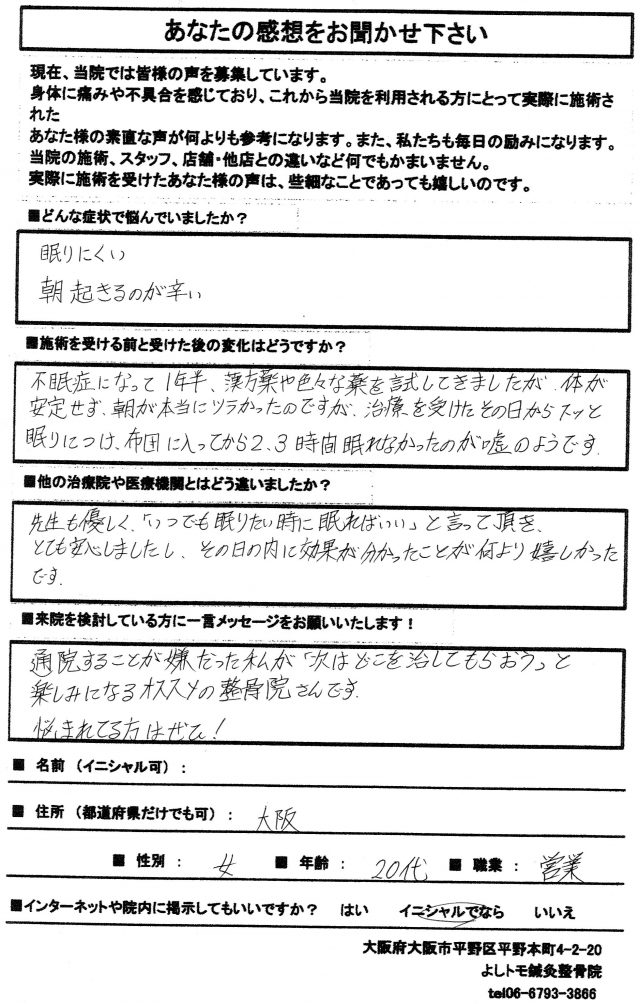 あなたの感想をお聞かせ下さい
現在、当院では皆様の声を募集しています。
身体に痛みや不具合を感じており、これから当院を利用される方にとって実際に施術さ
れた
あなた様の素直な声が何よりも参考になります。また、私たちも毎日の励みになります。
当院の施術、スタッフ、店舗・他店との違いなど何でもかまいません。
実際に施術を受けたあなた様の声は、些細なことであっても嬉しいのです。
■どんな症状で悩んでいましたか？
眠りにくい
朝起きるのが辛い
■施術を受ける前と受けた後の変化はどうですか？
不眠症になって1年半、漢方薬や色々な薬を試してきましたが、体が
安定せず、朝が本当にツラかったのですが、治療を受けたその日からスッと
眠りにつけ、布団に入ってから2、3時間眠れなかったのが嘘のようです。
■他の治療院や医療機関とはどう違いましたか？
先生も優しく、「いつでも眠りたい時に眠ればいい」と言って頂き、
とても安心しましたし、その日の内に効果が分かったことが何より嬉しかった
です。
■来院を検討している方に一言メッセージをお願いいたします！
通院することが嫌だった私が「次はどこを治してもらおう」と
楽しみになるオススメの整骨院さんです。
悩まれてる方はぜひ！
■ 名前（イニシャル可）：
■ 住所（都道府県だけでも可）： 大阪
■ 性別： 女 ■ 年齢： 20代 ■ 職業： 営業
■インターネットや院内に掲示してもいいですか？ はい イニシャルでなら いいえ
大阪府大阪市平野区平野本町4-2-20
よしトモ鍼灸整骨院
tel06-6793-3866